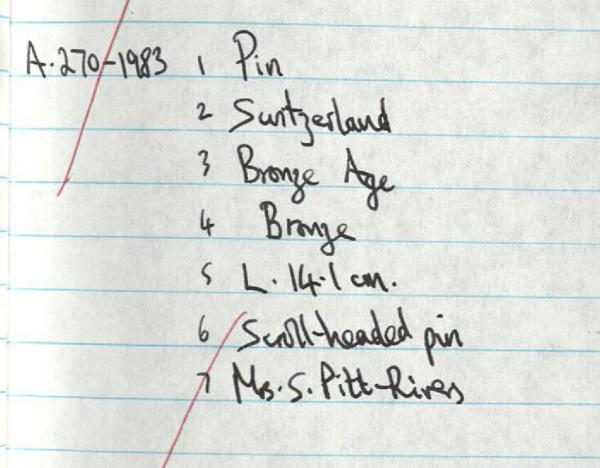 A.270-1983 1 Pin
2 Switzerland
3 Bronze Age
4 Bronze
5 L. 14.1 cm.
6 Scroll-headed pin
7 Mrs. S. Pitt-Rivers